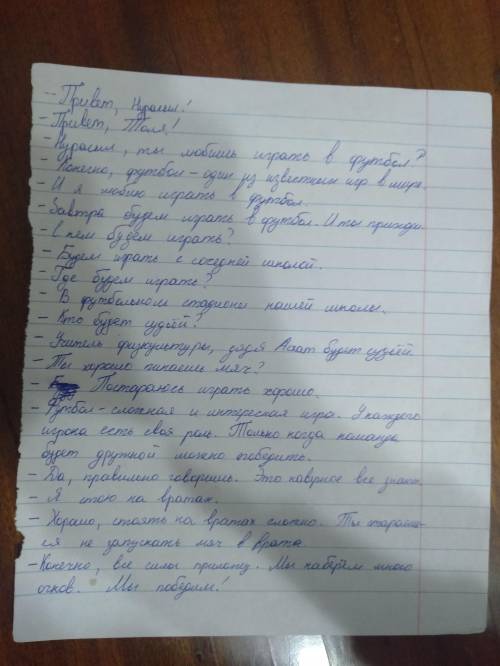 - Привет, Нурасил!
- Привет, Толя!
- Нурасил, ты любишь играть в футбол?
- Конечно, футбол - один из известных игр в мире.
- И я люблю играть в футбол.
- Завтра будем играть в футбол. И ты приходи.
- С кем будем играть?
- Будем играть с соседней школой.
- Где будем играть?
- В футбольном стадионе нашей школы.
- Кто будет судьёй?
- Учитель физкультуры, дядя Асат будет судьёй.
- Ты хорошо пинаешь мяч?
- Постараюсь играть хорошо.
- Футбол - сложная и интересная игра. У каждого
игрока есть своя роль. Только когда команда
будет дружной можно победить.
- Да, правильно говоришь. Это наверное все знают.
- Я стою на вратах.
- Хорошо, стоять на вратах сложно. Ты старай-
ся не запускать мяч в врата
- Конечно, все силы приложу. Мы наберём много
очков. Мы победим!